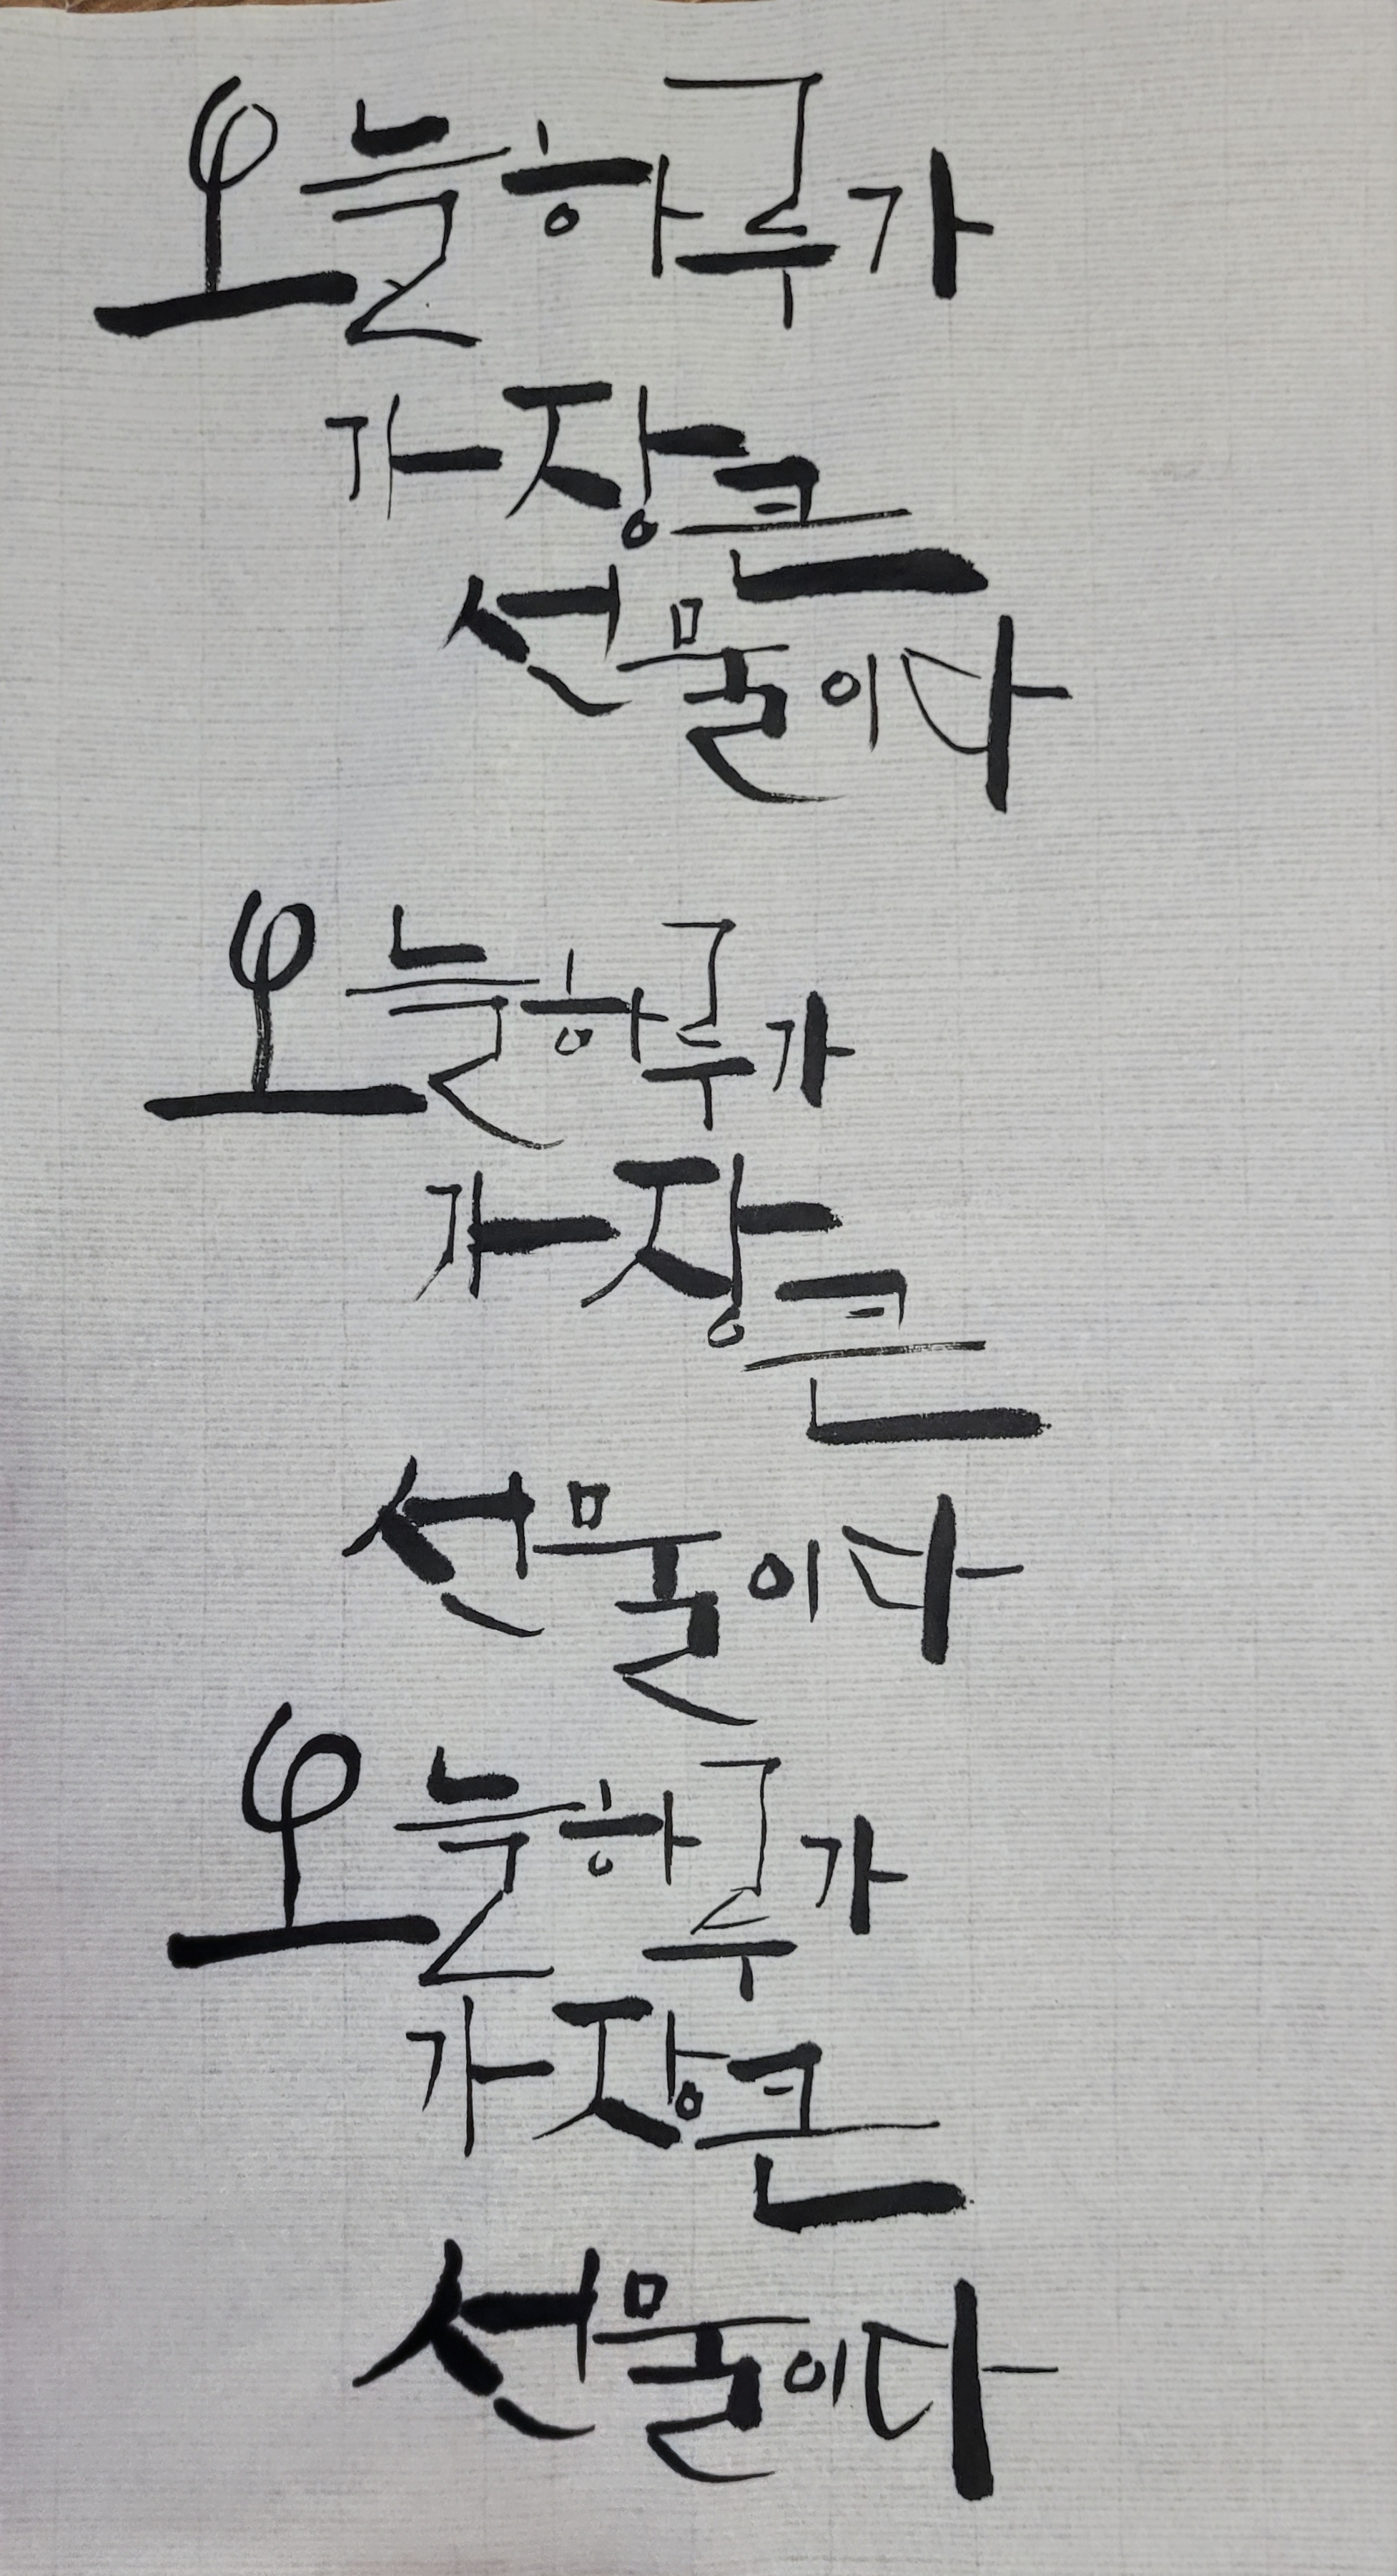 오늘하루가
가장큰
선물이다
오늘하루가
가장큰
선물이다
오늘하루가
가장큰
선물이다